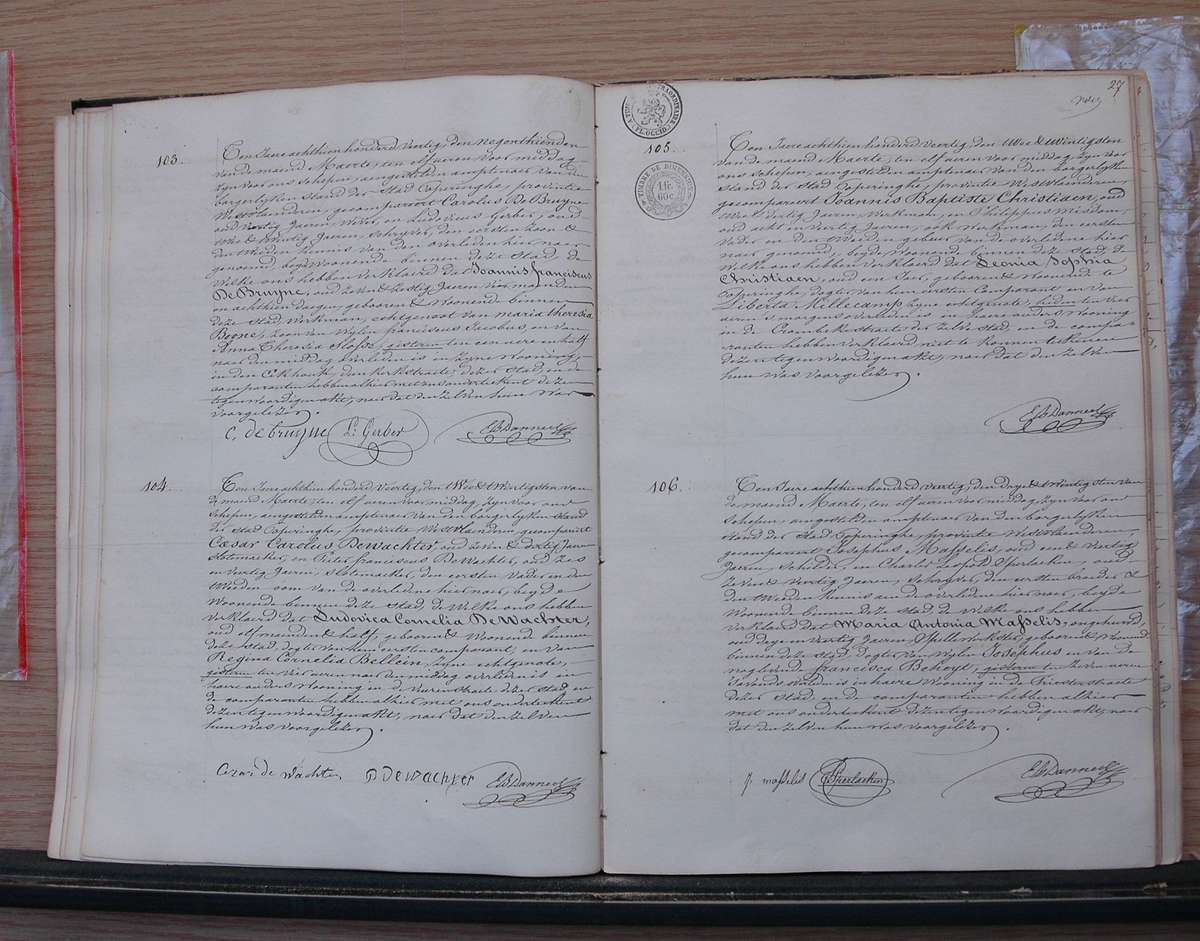 103.
Ten Jaere achthien honderd veertig, den negenthienden
van de maend Maerte, ten elf uren voor middag
zyn voor ons schepen, aengestelden amptenaer van den
borgerlyken stand der stad Poperinghe, provintie
Westvlaenderen, gecompareert Carolus De Bruyne
oud veertig Jaeren, en Ludovicus Gerber, oud
twee & Jaeren, schryver, den eersten zoon &
den tweeden kennis van den overledenen hier naer
genoemd, beyde woonende binnen deze stad, de
welke ons hebben verklaerd dat Joannis franciscus
De Bruyne, oud zeven & Jaeren vyf maenden
en achthien dagen, geboren & woonende binnen
deze stad, werkman, echtgenoot van maria theresia
Boone, zoon van wylen franciscus Jacobus, en van
Anna Theresia gisteren ten een ure en half
naer den middag overleden is in zyne wooning,
in den de Kerkstraete, dezer stad, en de
comparanten hebben alhier met ons onderteekent de zen
tegenwoordigen akt, naer dat den zelven hun was
voorgelezen.
C. de bruyne L. Gerber
104.
Ten Jaere achthien honderd veertig, den twee & twintigsten van
de maend Maerte, ten elf uren voor middag, zyn voor ons
Schepen, aengestelden amptenaer van den borgerlyken stand
der stad Poperinghe, provintie Westvlaenderen, gecompareert
Cæsar Carolus Dewachter, oud zeven & dertig Jaeren
slotmaeker, en Pieter franciscus De Wachter, oud zes
en veertig Jaeren, slotmaeker, den eersten vader en den
tweeden oom van de overledene hier naer, beyde
woonende binnen deze stad, de welke ons hebben
verklaerd dat Ludovica Cornelia De Wachter,
oud elf maenden & half, geboren & woonende binnen
deze stad, dogter van hem eersten comparant, en van
Regina Cornelia Bellein, zyne echtgenote,
gisteren ten vier uren naer den middag overleden is in
haere ouders wooning in de straete dezer stad en
de comparanten hebben alhier met ons onderteekent
dezen tegenwoordigen akt, naer dat den zelven
hun was voorgelezen.
Cezar de wachter P Dewachter
27
105.
Ten Jaere achthien honderd veertig, den twee & twintigsten
van de maend Maerte, ten elf uren voor middag zyn voor
ons schepen, aengestelden amptenaer van den borgerlyken
stand der stad Poperinghe, provintie Westvlaenderen,
gecompareert Joannis Baptiste Christiaen, oud
twee & veertig Jaeren, werkman, en Philippus
oud acht en veertig Jaeren, ook werkman, den eersten
vader en den tweeden gebuer van de overledene hier
naer genoemd, beyde woonende binnen deze stad, de
welke ons hebben verklaerd dat Leonia Sophia
Christiaen, oud een Jaer, geboren & woonende te
Poperinghe, dogter van hem eersten Comparant en van
Liberta Killecamp zyne echtgenote, heden ten vier
uren 's morgens overleden is in haere ouders wooning
in de straete der zelve stad en de compa-
ranten hebben verklaerd niet te konnen teekenen
dezen tegenwoordigen akt, naer dat den zelven
hun was voorgelezen.
106.
Ten Jaere achthien honderd veertig, den drye & twintigsten van
de maend Maerte, ten elf uren voor middag zyn voor ons
Schepen, aengestelden amptenaer van den borgerlyken
stand der stad Poperinghe, provintie Westvlaenderen
gecompareert Josephus Masselis, oud een & veertig
Jaeren, Schilder, en Charles Leopold Sperlaeken, oud
zeven & veertig Jaeren, schryver, den eersten broeder &
den tweeden kennis aen de overledene hier naer, beyde
woonende binnen deze stad, de welke ons hebben
verklaerd dat Maria Antonia Masselis, ongehuwd,
oud drye en veertig Jaeren, geboren & woonende
binnen deze stad, dogter van wylen Josephus en van de
nog levende francisca Behoyt, gisteren ten zeven uren
's avonds overleden is in haere wooning in de straete
dezer stad en de comparanten hebben alhier
met ons onderteekent dezen tegenwoordigen akt, naer
dat den zelven hun was voorgelezen.
j. masselis Sperlaeken